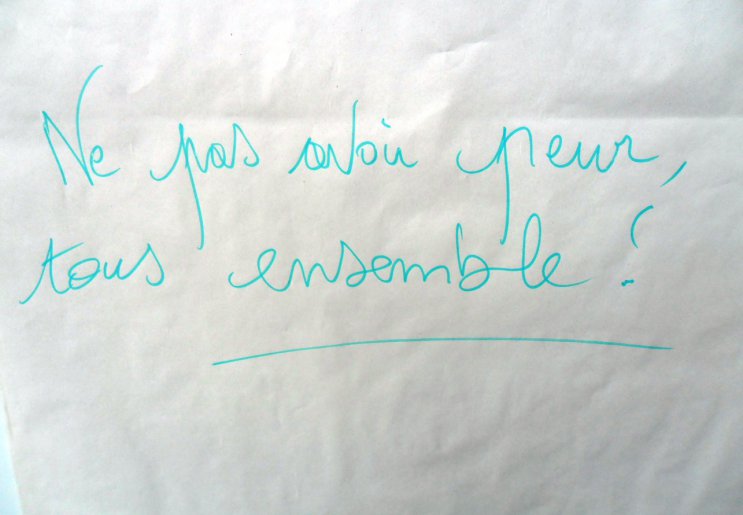 Ne pas avoir peur,
tous ensemble !